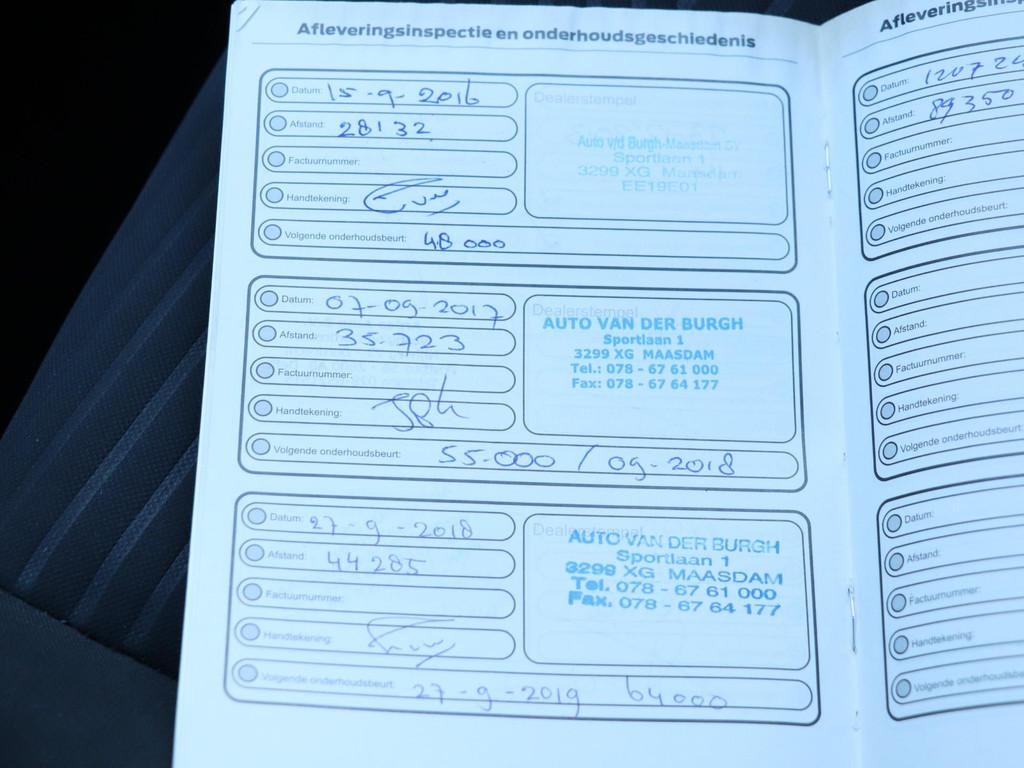 Afleveringsinspectie en onderhoudsgeschiedenis
Datum: 15-9-2016
Afstand: 28132
Factuurnummer:
Handtekening:
Volgende onderhoudsbeurt: 48 000
Dealerstempel
Auto v/d Burgh-Maasdam BV
Sportlaan 1
3299 XG Maasdam
EE19E01
Datum: 07-09-2017
Afstand: 35.723
Factuurnummer:
Handtekening:
Volgende onderhoudsbeurt: 55.000 / 09-2018
Dealerstempel
AUTO VAN DER BURGH
Sportlaan 1
3299 XG MAASDAM
Tel.: 078 - 67 61 000
Fax: 078 - 67 64 177
Datum: 27-9-2018
Afstand: 44285
Factuurnummer:
Handtekening:
Volgende onderhoudsbeurt: 27-9-2019 64000
Dealerstempel
AUTO VAN DER BURGH
Sportlaan 1
3299 XG MAASDAM
Tel. 078 - 67 61 000
Fax. 078 - 67 64 177
Datum:
Afstand: 89350
Factuurnummer:
Handtekening:
Volgende onderhoudsbeurt:
Datum:
Afstand:
Factuurnummer:
Handtekening:
Volgende onderhoudsbeurt:
Datum:
Afstand:
Factuurnummer:
Handtekening:
Volgende